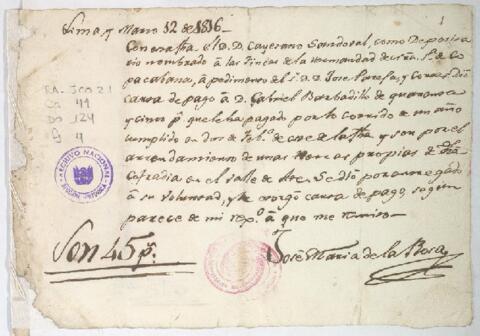 Lima y Marzo 12 de 1816
1
Con esta fha el D. D. Cayetano Sandoval, como Deposita
rio nombrado á las Fincas de la Hermandad de ntra. Sra. de Co
pacabana, á pedimento del S. D. D. Jose y otorgó
carta de pago á D. Gabriel Barbadillo de quarenta
y cinco p. que le ha pagado por lo corrido de un año
cumplido en dos de Feb.o de este de la fha, y son por el
arrendamiento de unas tierras propias de dha
Cofradia en el valle de Ate. Se dió por entregado
á su voluntad, y le otorgó carta de pago, segun
parece de mi reg.o á que me remito
Son 45 p.
José Maria de la Rosa
ARCHIVO NACIONAL
124
4